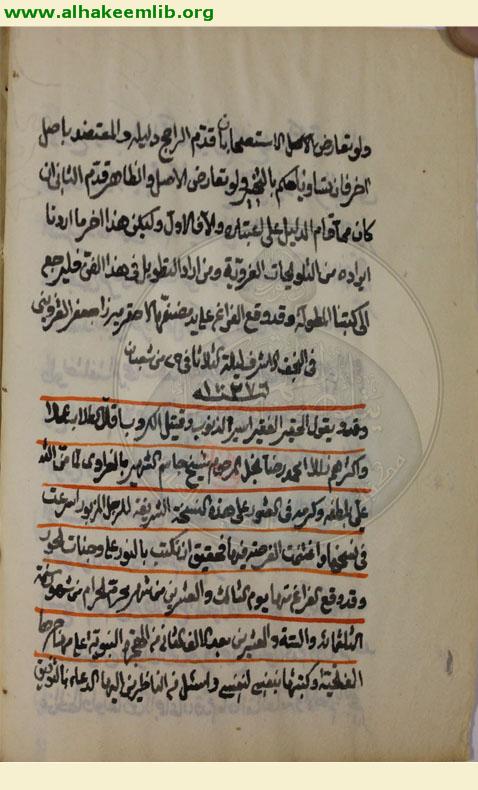 www.alhakeemlib.org
ولو تعارض الاصل الاستصحابان قدّم الراجح دليله والمعتضد باصل
اخر فان تساويا حكم بالتخيير ولو تعارض الاصل والظاهر قدّم الثاني ان
كان مما قام الدليل على اعتباره والا فالاول وليكن هذا اخر ما اردنا
ايراده من التلويحات الغروية ومن اراد التطويل في هذا الفن فليرجع
الى كتبنا المطولة وقد وقع الفراغ على يد مصنفها الاحقر ميرزا جعفر القزويني
في النجف الاشرف ليلة الثلاثا في من شعبان
وقد يقول الحقير الفقير اسير الذنوب وقتيل الكروب اقل الطلاب عملا
واكثرهم زللا محمد رضا نجل المرحوم شيخ جاسم الشهير بالغراوي لما منّ الله
عليّ بلطفه وكرمه في العثور على هذه النسخة الشريفة للرجل المزبور اسرعت
في نسخها واغتنمت الفرصة فيها فحقيق ان تكتب بالنور على وجنات الحور
وقد وقع الفراغ منها يوم الثالث والعشرين من شهر محرم الحرام من شهور سنة
الثلثمائة والستة والعشرين بعد الالف من الهجرة النبوية على مهاجرها
التحية وكتبتها بنفسي لنفسي واسئل من الناظرين اليها الدعاء بالتوفيق